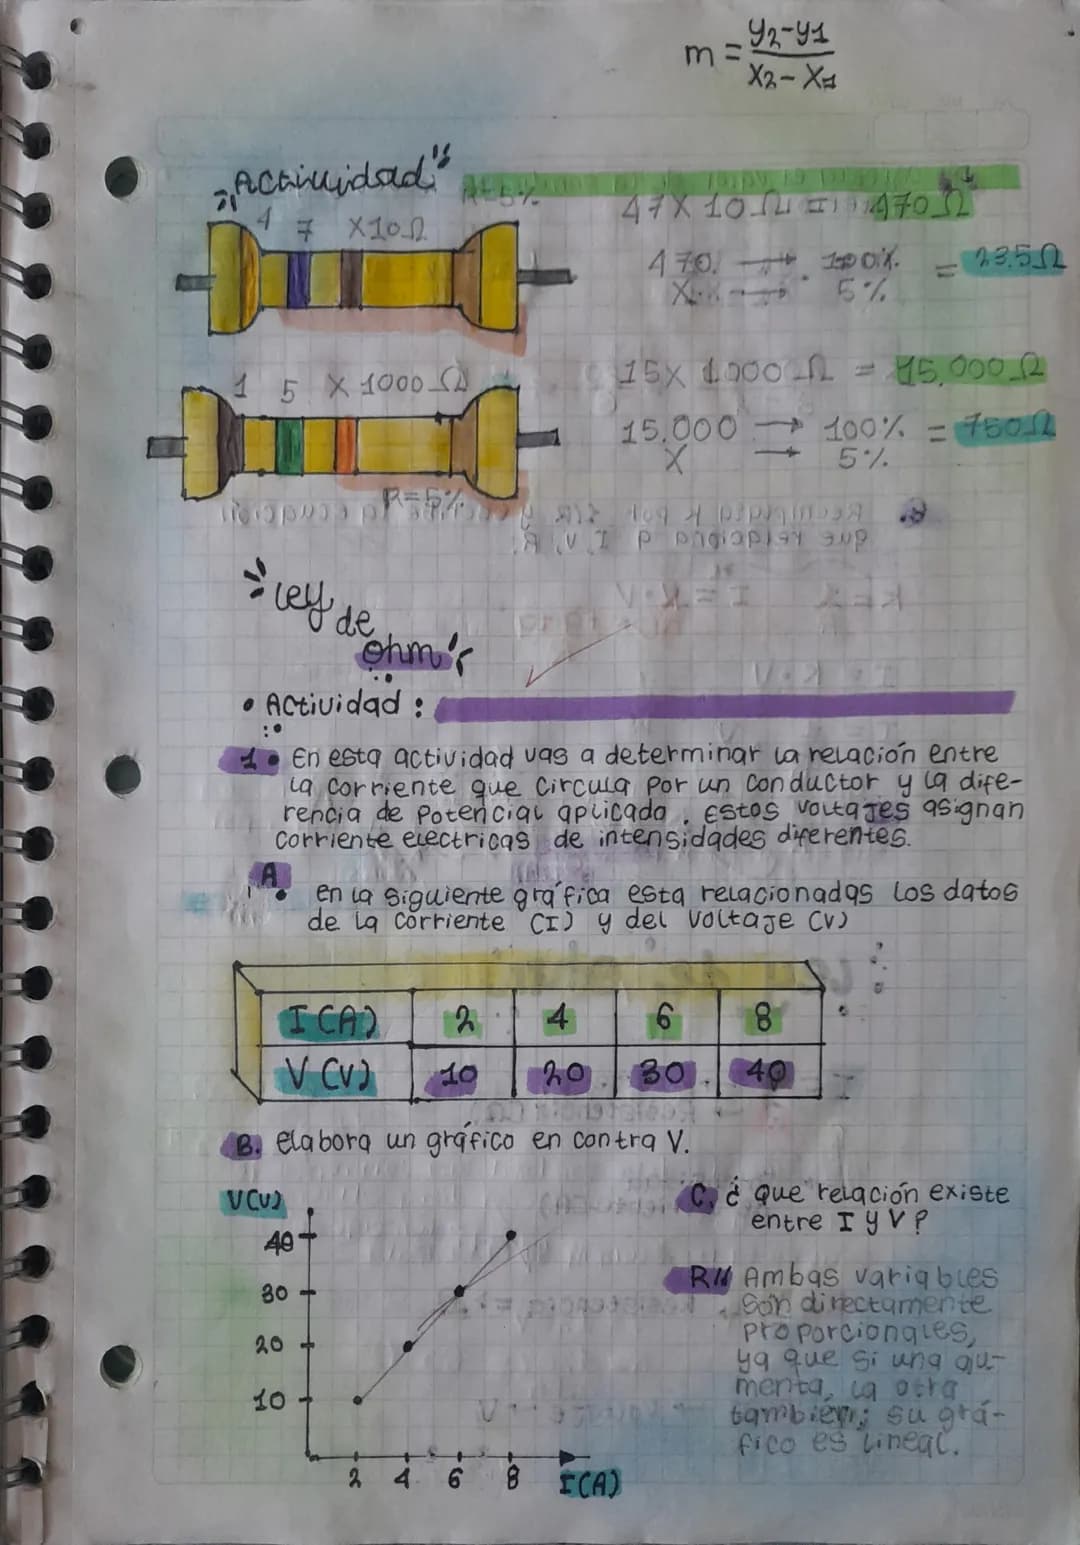 m = y2-y1
x2-x1
Actividad
R=5%
4 7 X10Ω
47X10Ω = 470Ω
470 → 100% = 23.5Ω
X → 5%
1 5 X 1000 Ω
15X 1000 Ω = 15.000Ω
15.000 → 100% = 750Ω
X → 5%
R=5%
Ley
de
ohm
• Actividad :
1• En esta actividad vas a determinar la relación entre
la corriente que circula por un conductor y la dife-
rencia de potencial aplicado. Estos voltajes asignan
corriente electricas de intensidades diferentes.
A
• en la siguiente gráfica esta relacionadas los datos
de la corriente (I) y del voltaje (V)
I(A) 2 4 6 8
V(V) 10 20 30 40
B. elabora un gráfico en contra V.
V(V)
40
30
20
10
2 4 6 8 I(A)
C. ¿ que relación existe
entre I y V ?
R// Ambas variables
son directamente
proporcionales,
ya que si una au-
menta, la otra
también; su grá-
fico es lineal.